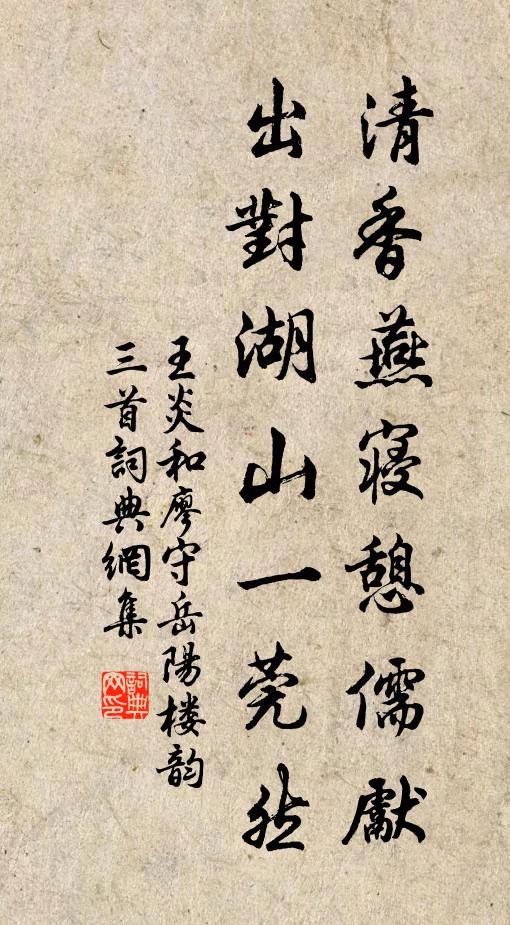 清香燕寝憩儒獻
出對湖山一莞然
王炎和廖守岳陽楼韵
三首詞典網集
詞典网印